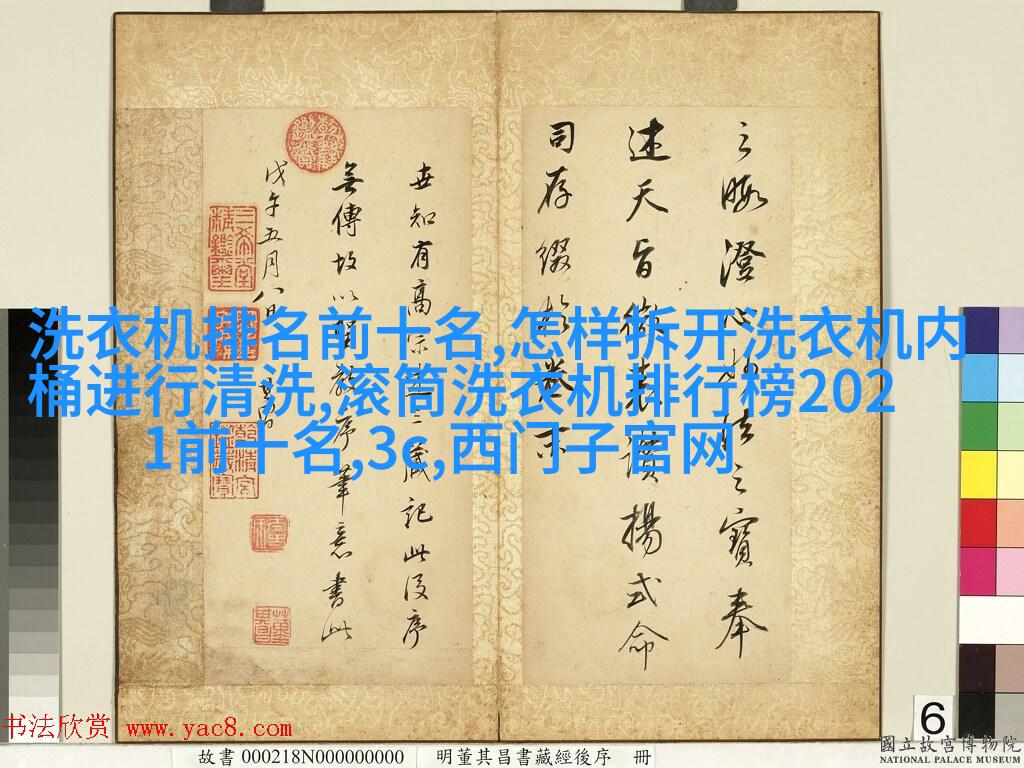 之暇澄心妙法之寶奉
述天旨微表讚揚式命
司存綴於卷末
世知有高宗述三藏記此後序
無傳故以聖教序筆意書此
戊午五月八日
其昌
洗衣机排名前十名,怎样拆开洗衣机内
桶进行清洗,滚筒洗衣机排行榜202
1前十名,3c,西门子官网
书法欣赏 www.yac8.com
故書 000218N000000000 明董其昌書藏經後序 冊
6
國立故宮博物院
NATIONAL PALACE MUSEUM